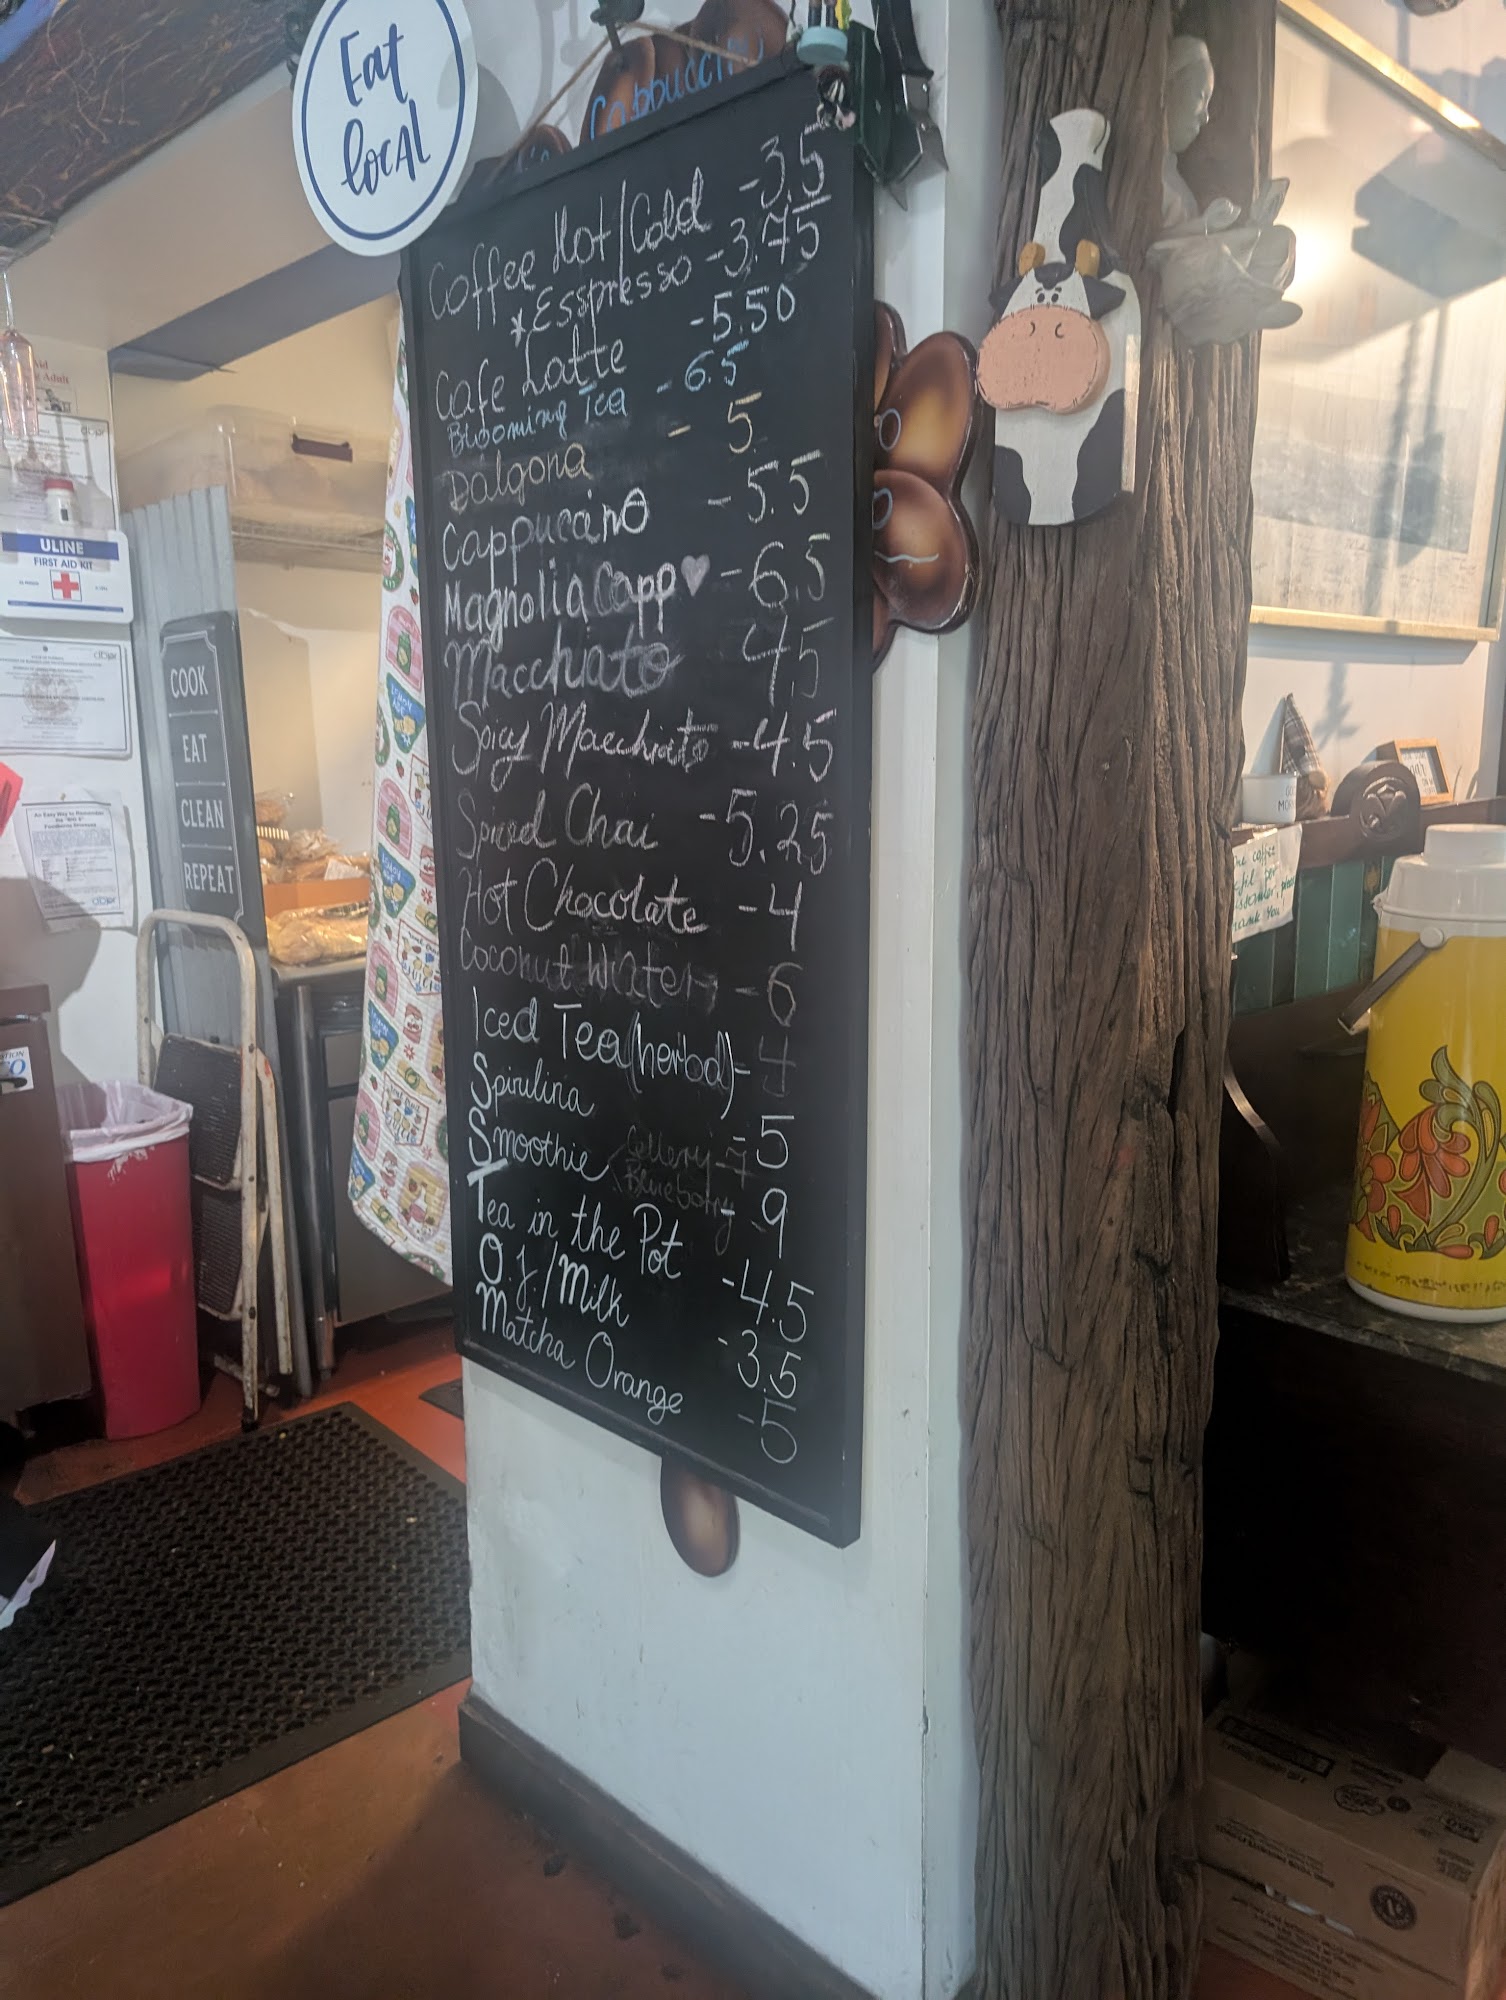 Eat
local
Cappuccin
Coffee Hot/Cold -3.5
*Esspresso -3.75
Cafe Latte -5.50
Blooming Tea -6.5
Dalgona - 5
Cappuccino -5.5
Magnolia Capp♥ -6.5
Macchiato 4.5
Spicy Macchiato -4.5
Spiced Chai -5.25
Hot Chocolate -4
Coconut Water -6
Iced Tea (herbal)- 4
Spirulina -5
Smoothie Cellery -7
Blueberry - 9
Tea in the Pot -4.5
O.j./Milk -3.5
Matcha Orange -5
ULINE
FIRST AID KIT
COOK
EAT
CLEAN
REPEAT